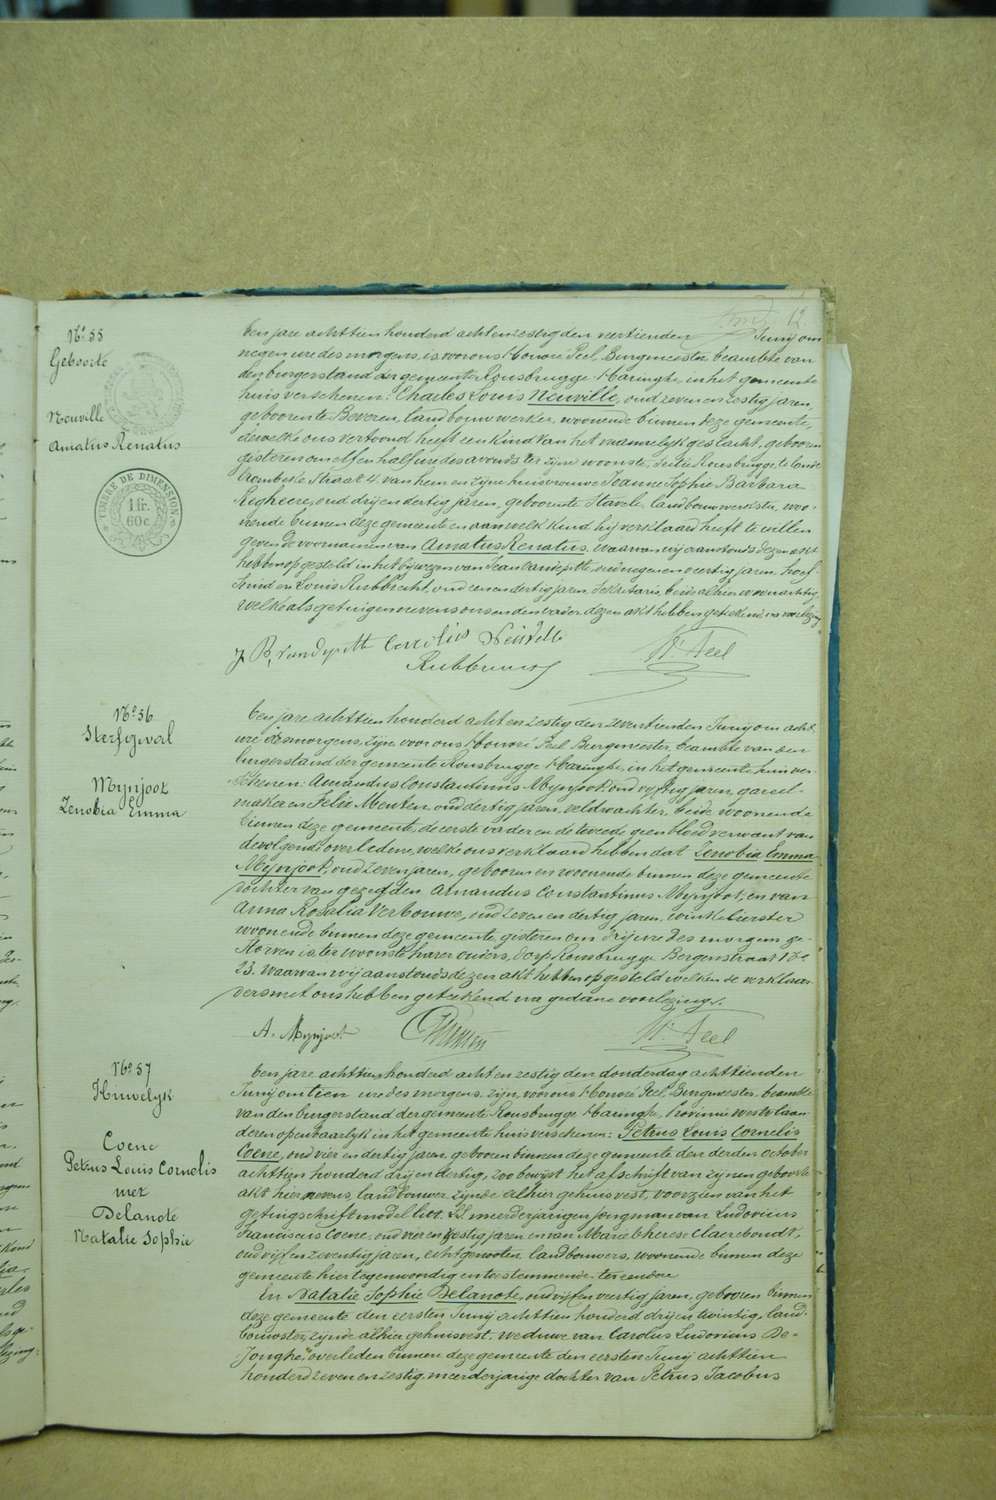 12
N.º 55
Geboorte
Neuville
Amatus Renatus
TIMBRE DE DIMENSION
1 fr.
60 c.
Ten jare achttien honderd achtenzestig den veertienden Junij om
negen ure des morgens, is voor ons Honoré Peel, Burgmeester beambte van
den burgerstand der gemeente Rousbrugge-Haringhe, in het gemeente
huis verschenen: Charles Louis Neuville, oud zeven en zestig jaren,
geboren te Beveren, landbouwwerker, woonende binnen deze gemeente,
dewelke ons vertoond heeft een kind van het mannelijk geslacht, geboren
gisteren om elf en half ure des avonds ter zijne woonste, sectie Rousbrugge, te lande
Crombeke Straat 4, van hem en zijne huisvrouwe Jeanne Sophie Barbara
Regheere, oud drij en dertig jaren, geboren te Stavele, landbouwwerkster, woo-
nende binnen deze gemeente en aan welk kind hij verklaard heeft te willen
geven de voornamen van Amatus Renatus, waarvan wij aanstonds dezen akt
hebben opgesteld in het bijwezen van Jean Vandeputte, oud negen en veertig jaren, hoef
smid en Louis Rubbrecht, oud een en dertig jaren, Sekretaris, beide alhier woonachtig
welke als getuigen nevens ons en den vader dezen akt hebben geteekend, na voorlezing
J B, Vandeputte Cornelius Neuville
Rubbrecht H. Peel
N.º 56
Sterfgeval
Mynjoot
Zenobia Emma
Ten jare achttien honderd acht en zestig den zeventienden Junij om acht
ure des morgens, zijn voor ons Honoré Peel, Burgmeester, beambte van den
burgerstand der gemeente Rousbrugge-Haringhe, in het gemeente huis ver-
schenen: Amandus Constantinus Mynjoot, oud vijftig jaren, gareel-
maker en Felix Meuten, oud dertig jaren, veldwachter, beide woonende
binnen deze gemeente, de eerste vader en de tweede geen bloedverwant van
de volgende overledene, welke ons verklaard hebben dat Zenobia Emma
Mynjoot, oud zeven jaren, geboren en woonende binnen deze gemeente
dochter van gezegden Amandus Constantinus Mynjoot, en van
Anna Rosalia Verbouwe, oud zeven en dertig jaren, winkelierster
woonende binnen deze gemeente, gisteren om drij ure des morgens ge-
storven is ter woonste harer ouders, dorp Rousbrugge Bergenstraat N.º
23. Waarvan wij aanstonds dezen akt hebben opgesteld welken de verklaar-
ders met ons hebben geteekend na gedane voorlezing.
A. Mynjoot H. Peel
N.º 57
Huwelijk
Coene
Petrus Louis Cornelis
met
Delanote
Natalie Sophie
Ten jare achttien honderd acht en zestig den donderdag achttienden
Junij om tien ure des morgens, zijn voor ons Honoré Peel, Burgmeester, beambte
van den burgerstand der gemeente Rousbrugge-Haringhe, Provincie Westvlaan-
deren openbaarlijk in het gemeente huis verschenen: Petrus Louis Cornelis
Coene, oud vier en dertig jaren, geboren binnen deze gemeente den derden october
achttien honderd drij en dertig, zoo bewijst het afschrift van zijnen geboorte
akt hier nevens, landbouwer, zijnde alhier gehuisvest, voorzien van het
getuigschrift model litt. meerderjarigen jongman van Ludovicus
Franciscus Coene, oud vier en zestig jaren en van Marie Therese Claereboudt,
oud vijf en zeventig jaren, echtgenooten, landbouwers, woonende binnen deze
gemeente hier tegenwoordig en toestemmende, ter eendere
En Natalie Sophie Delanote, oud vijf en veertig jaren, geboren binnen
deze gemeente den eersten Junij achttien honderd drij en twintig, land-
bouwster, zijnde alhier gehuisvest, weduwe van Carolus Ludovicus De-
Jonghe, overleden binnen deze gemeente den eersten Junij achttien
honderd zeven en zestig, meerderjarige dochter van Petrus Jacobus